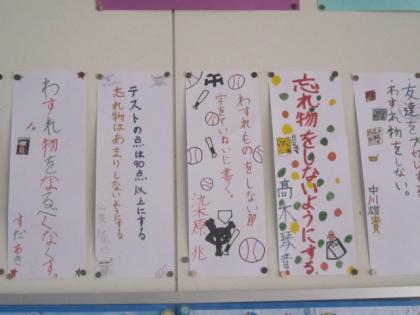 友達を大
わすれ物をしない。
中川雄貴
忘れ物をしないようにする
高木琴音
わすれものをしない!!
字をていねいに書く。
染木原 兆
テストの点は90点以上にする
忘れ物はあまりしないようにする
わすれ物をなるべくなくす。
すだあき